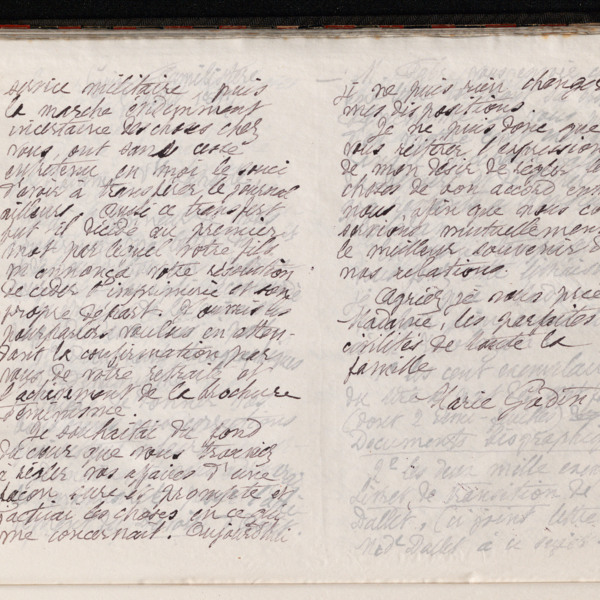 service militaire, puis
la marche évidemment
incertaine des choses chez
vous, ont sans cesse
entretenu en moi le souci
d'avoir à transférer le journal
ailleurs. Aussi ce transfert
fut il décidé au premier
mot par lequel votre fils
m'annonça votre résolution
de céder l'imprimerie et son
propre départ. Je
pourparlers voulus en atten-
dant la confirmation par
vous de votre retrait et
l'achèvement de la brochure
Je souhaitai du fond
du cœur que vous
à régler vos affaires d'une
façon sûre et prompte et
j'activai les choses en ce qui
me concernait. Aujourd'hui
je ne puis rien changer
mes dispositions.
Je ne puis donc que
vous réitérer l'expression
de mon désir de régler les
choses de bon accord entre
nous, afin que nous con
servions mutuellement
le meilleur souvenir de
nos relations.
Agréez je vous prie
Madame, les parfaites
civilités de toute la
famille
Marie Godin